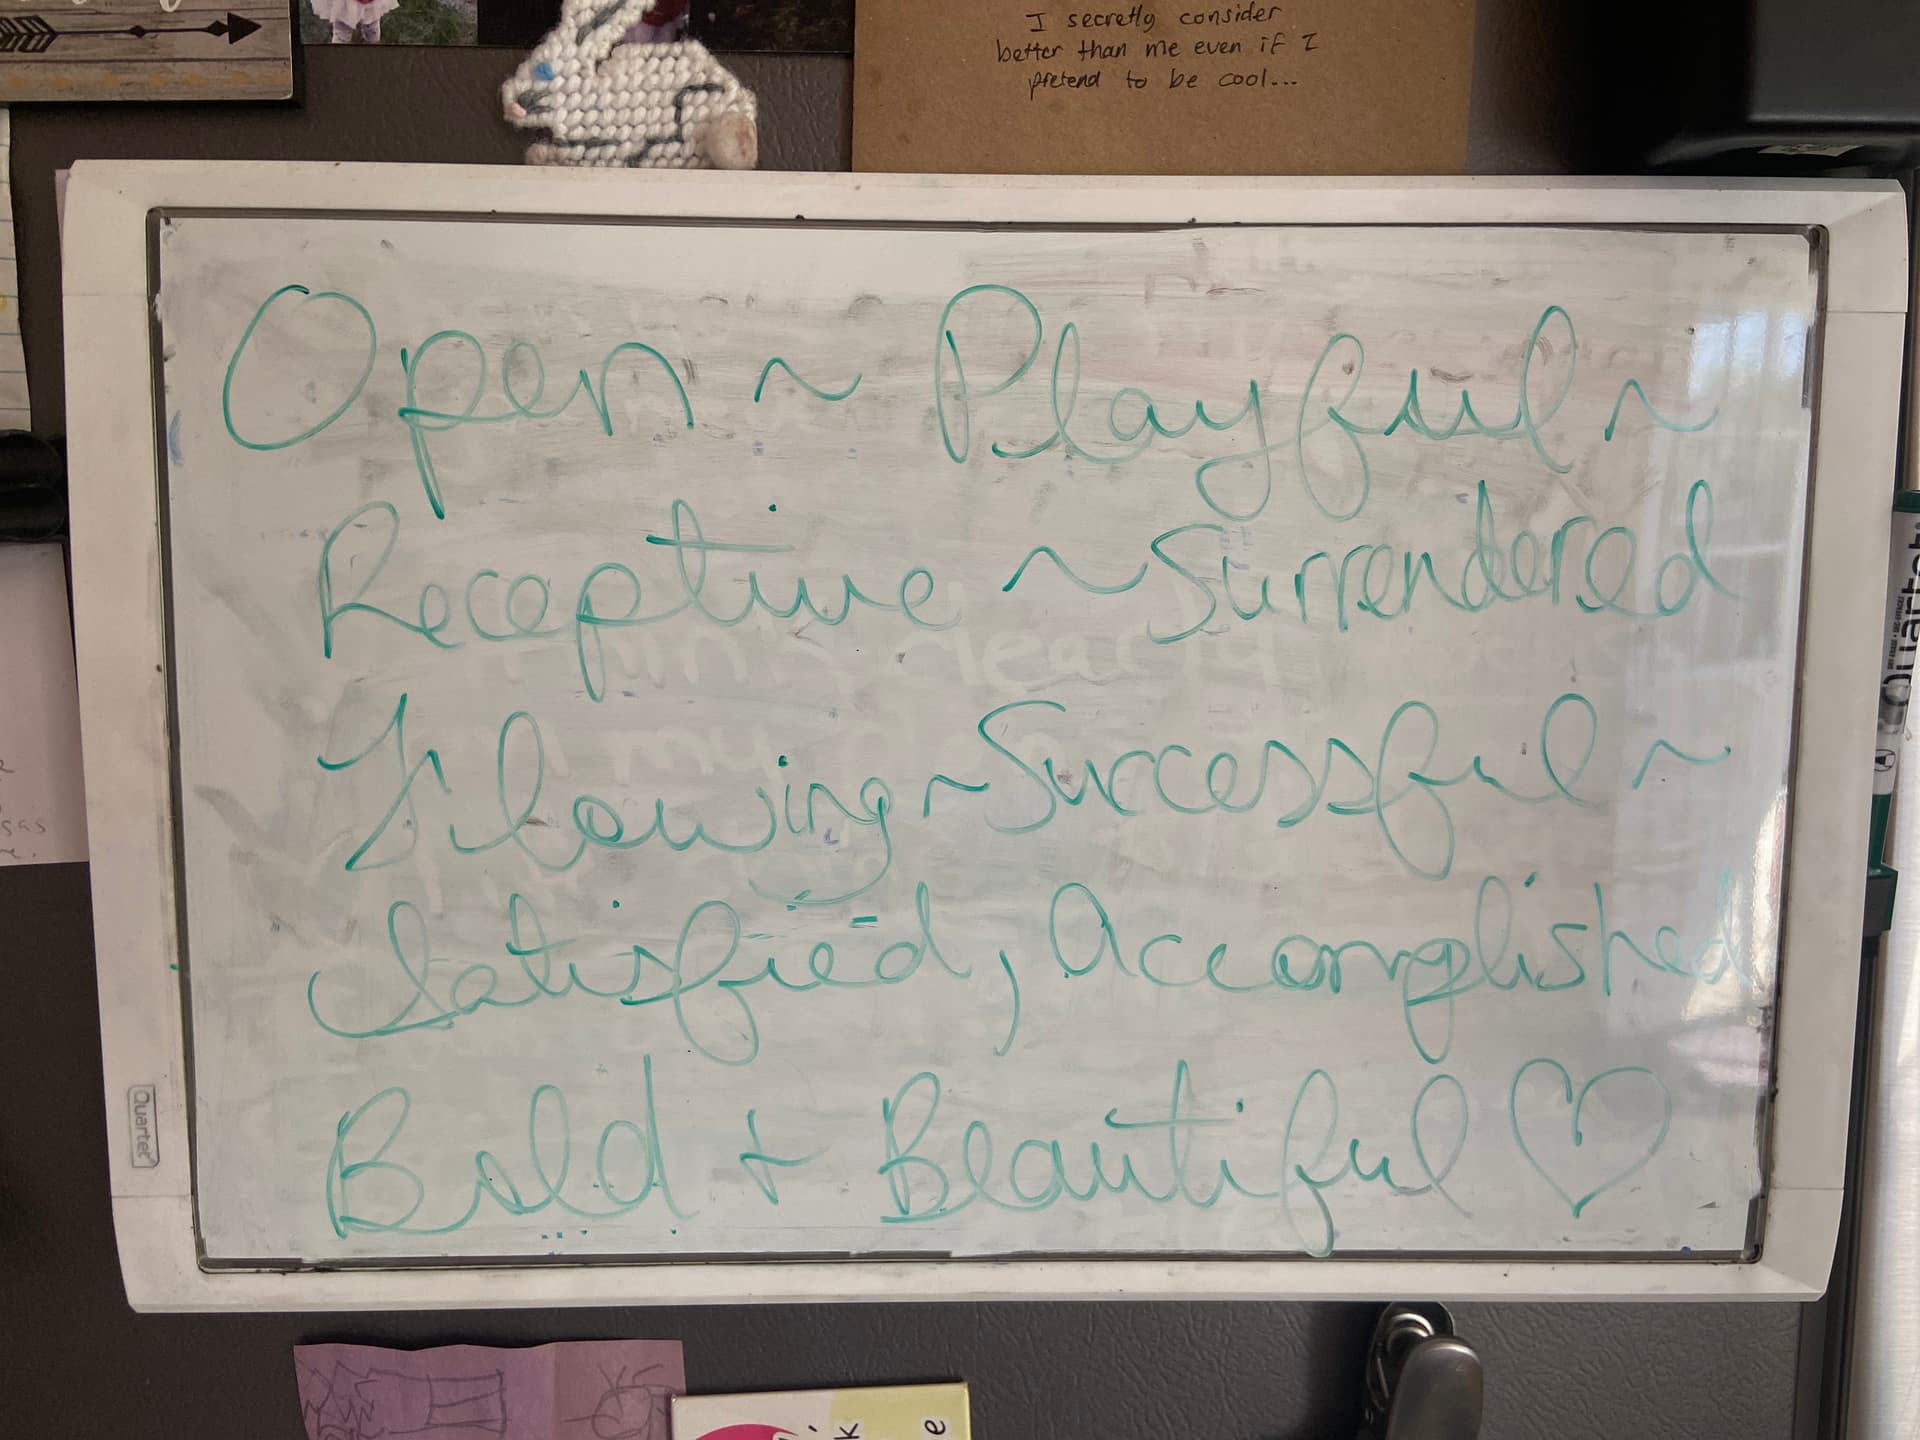 I secretly consider
better than me even if I
pretend to be cool...
Open ~ Playful ~
Receptive ~ Surrendered
Flowing ~ Successful ~
Satisfied, Accomplished
Bold + Beautiful ♡
Quartet
Quartet